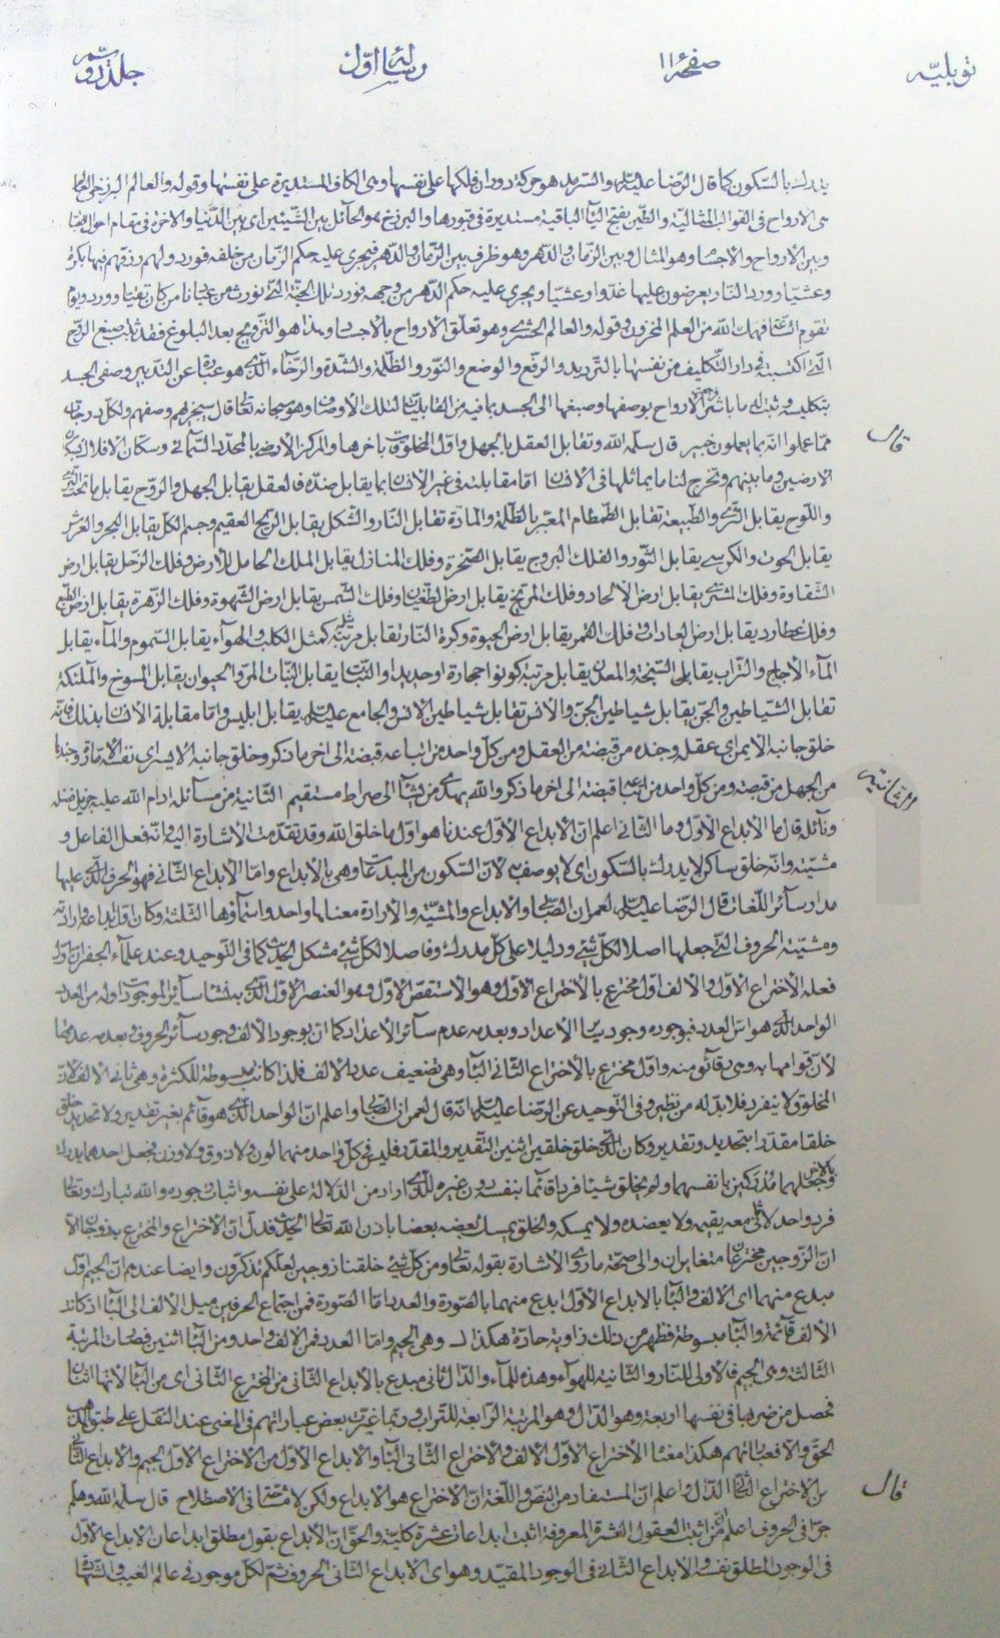 توبليّه
صفحه ١١
رسالهٔ اوّل
جلد دوّم
يدرك بالسّكون كما قال الرّضا عليه السلم والسّرمد هو حركة دوران فلكها على نفسها وهى الكاف المستديرة على نفسها وقوله والعالم البرزخى
هى الارواح فى القوالب المثالية والطّين بفتح الياء الباقية مستديرة فى قبورها والبرزخ هو الحائل بين الشّيئين اى بين الدّنيا والاخرة فى مقام
وبين الارواح والاجسا وهو المثال وبين الزّمان والدّهر وهو ظرف بين الزّمان والدّهر فيجرى عليه حكم الزّمان من خلفه فورد ولهم رزقهم فيها بكرة
وعشيّا وورد النّار يعرضون عليها غدّوا وعشيّا ويجرى عليه حكم الدّهر من وجهه فورد تلك الجنّة الّتى نورث من عبادنا من كان تقيّا وورد ويوم
تقوم السّاعة فهمك الله من العلم المخزون وقوله والعالم الحشرى وهو تعلّق الارواح بالاجسا وهذا هو التّزويج بعد البلوغ فقد صبغ الرّوح
الّتى اكتسبته فى دار التّكليف من نفسها بالتّرديد والرّفع والوضع والنّور والظّلمة والشّدة والرّخاء الّذى هو عبارة عن التّدبير وصفى الجسد
بتكليسه الارواح بوصفها وصبغها الى الجسد بما فيه من القابليّات لتلك الاوصاف وهو سبحانه تعالى قال سيجزيهم وصفهم ولكلّ درجات
ممّا عملوا انّه بما يعملون خبير قال سلّمه الله وتقابل العقل بالجهل واوّل المخلوقات باخرها والمركز الارضى بالمحدّد السّمائى وسكان الافلاك
قال
الارضين وما بينهم وتخرج لنا ما يماثلها فى الانسان امّا مقابلته فى غير الانسان بما يقابل ضدّه فالعقل يقابل الجهل والرّوح يقابل ما تحت الثّرى
واللّوح يقابل الثّرى والطّبيعة تقابل الطّمطام المعبّر بالظّلمة والمادّة تقابل النّار والشّكل يقابل الرّيح العقيم وجسم الكلّ يقابل البحر والعرش
يقابل الحوت والكرسى يقابل الثّور والفلك البروج يقابل الصّخرة وفلك المنازل يقابل الملك الحامل للارض وفلك الزّحل يقابل ارض
الشّقاوة وفلك المشترى يقابل ارض الالحاد وفلك المرّيخ يقابل ارض الطّغيان وفلك الشّمس يقابل ارض الشّهوة وفلك الزّهرة يقابل ارض الطّبع
وفلك عطارد يقابل ارض العادات وفلك القمر يقابل ارض الحيوة وكرة النّار تقابل مرتبة كمثل الكلب والهوآء يقابل السّموم والمآء يقابل
المآء الاجاج والتّراب يقابل السّبخة والمعدن يقابل مرتبة كونوا حجارة او حديدا والنّبات يقابل النّبات المرّ والحيوان يقابل المسوخ والملئكة
تقابل الشّياطين والجنّ يقابل شياطين الجنّ والانس تقابل شياطين الانس والجامع عليه السلم يقابل ابليس وامّا مقابلة الانسان بذلك فانّه
خلق جانبه الايمن اى عقله وجنده من قبضة من العقل ومن كلّ واحد من اتباعه قبضة الى اخر ما ذكر وخلق جانبه الايسر اى نفسه الامّارة وجندها
من الجهل من قبضة ومن كلّ واحد من اتباعه قبضة الى اخر ما ذكر والله يهدى من يشآء الى صراط مستقيم الثّانية من مسآئله ادام الله عليه جزيل فضله
والثّانية
ونآئله قال ما الابداع الاوّل وما الثّانى اعلم انّ الابداع الاوّل عندنا هو اوّل ما خلق الله وقد تقدّمت الاشارة اليه وانّه فعل الفاعل و
مشيّته وانّه خلق ساكن لا يدرك بالسّكون اى لا يوصف به لانّ السّكون من المبدعات وهى بالابداع وامّا الابداع الثّانى فهو الحرف الّذى عليها
مدار سآئر اللّغات قال الرّضا عليه السلم لعمران الصّابى والابداع والمشيّة والارادة معناها واحد واسمآؤها الثّلثة وكان اوّل ابداعه وارادته
ومشيّته الحروف الّتى جعلها اصلا لكلّ شئ ودليلا على كلّ مدرك وفاصلا لكلّ شئ مشكل الحديث كما فى التّوحيد وعند علمآء الجفر انّ اوّل
فعله الاختراع الاوّل والالف اوّل مخترع بالاختراع الاوّل وهو الاستقص الاوّل وهو العنصر الاوّل الّذى به نشا سآئر الموجودات اوله من العدد
الواحد الّذى هو اسّ العدد فبوجوده وجود سآئر الاعداد وبعدمه عدم سآئر الاعداد كما انّ بوجود الالف وجود سآئر الحروف وبعدمه عدمها
لانّ قوامها به وهى رقآئق منه واوّل مخترع بالاختراع الثّانى البآء وهى تضعيف عدد الالف فلذا كانت مبسوطة للكثرة وهى ثانية الالف لانّ
المخلوق لا ينفرد فلا بدّ له من نظير وفى التّوحيد عن الرّضا عليه السلم انّه قال لعمران الصّابى واعلم انّ الواحد الّذى هو قآئم بغير تقدير ولا تحديد خلق
خلقا مقدّرا بتحديد وتقدير وكان الّذى خلق خلقين اثنين التّقدير والمقدّر فليس فى كلّ واحد منهما لون ولا ذوق ولا وزن فجعل احدهما يدرك
بالاخر وجعلهما مدركين بانفسهما ولم يخلق شيئا فردا قآئما بنفسه دون غيره للّذى اراد من الدّلالة على نفسه واثبات وجوده والله تبارك وتعالى
فرد واحد لا ثانى معه يقيمه ولا يعضده ولا يمسكه والخلق يمسك بعضه بعضا باذن الله تعالى الحديث فدلّ انّ الاختراع والمخترع به زوجان الّا
انّ الزّوجين مخترعان متغايران والى صحّة ما روى الاشارة بقوله تعالى ومن كلّ شئ خلقنا زوجين لعلّكم تذكّرون وايضا عندهم انّ الجيم اوّل
مبدع منهما اى الالف والبآء بالابداع الاوّل ابدع منهما بالصّورة والعدد امّا الصّورة فمن اجتماع الحرفين ميل الالف الى البآء اذ كانت
الالف قآئمة والبآء مبسوطة فظهر من ذلك زاوية حادّة هكذا ـ وهى الجيم وامّا العدد فمن الالف واحد ومن البآء اثنين فصارت المرتبة
الثّالثة وهى الجيم فالاولى للنّار والثّانية للهوآء وهذه للمآء والدّال ثانى مبدع بالابداع الثّانى من المخترع الثّانى اى من البآء لانّها اثنان
فحصل من ضربها فى نفسها اربعة وهو الدّال وهو المرتبة الرّابعة للتّراب وربّما غيّرت بعض عباراتهم فى المعنى عند النّقل على طبق
الحقّ والّا فعباراتهم هكذا معنا الاختراع الاوّل الالف والاختراع الثّانى البآء والابداع الاوّل من الاختراع الاوّل الجيم والابداع الثّانى
من الاختراع الثّانى الدّال واعلم انّ المستفاد من النّص واللّغة انّ الاختراع هو الابداع ولكن لا مشاحّة فى الاصطلاح قال سلّمه الله وهلمّ
قال
جرّا فى الحروف اعلم انّ من اثبت العقول العشرة المعروفة اثبت ابداعات عشرة كليّة والحقّ انّ الابداع بقول مطلق ابداعان الابداع الاوّل
فى الوجود المطلق نفسه والابداع الثّانى فى الوجود المقيّد وهو اى الابداع الثّانى الحروف ثمّ لكلّ موجود فى عالم الغيب والشّهادة